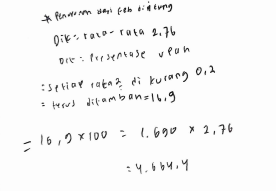 * Penurunan dari
Dik = rata-rata 2,76
Dit = Persentase upah
: setiap rata2 di kurang 0,2
= terus ditambah = 16,9
= 16,9 x 100 = 1.690 x 2,76
= 4.664,4